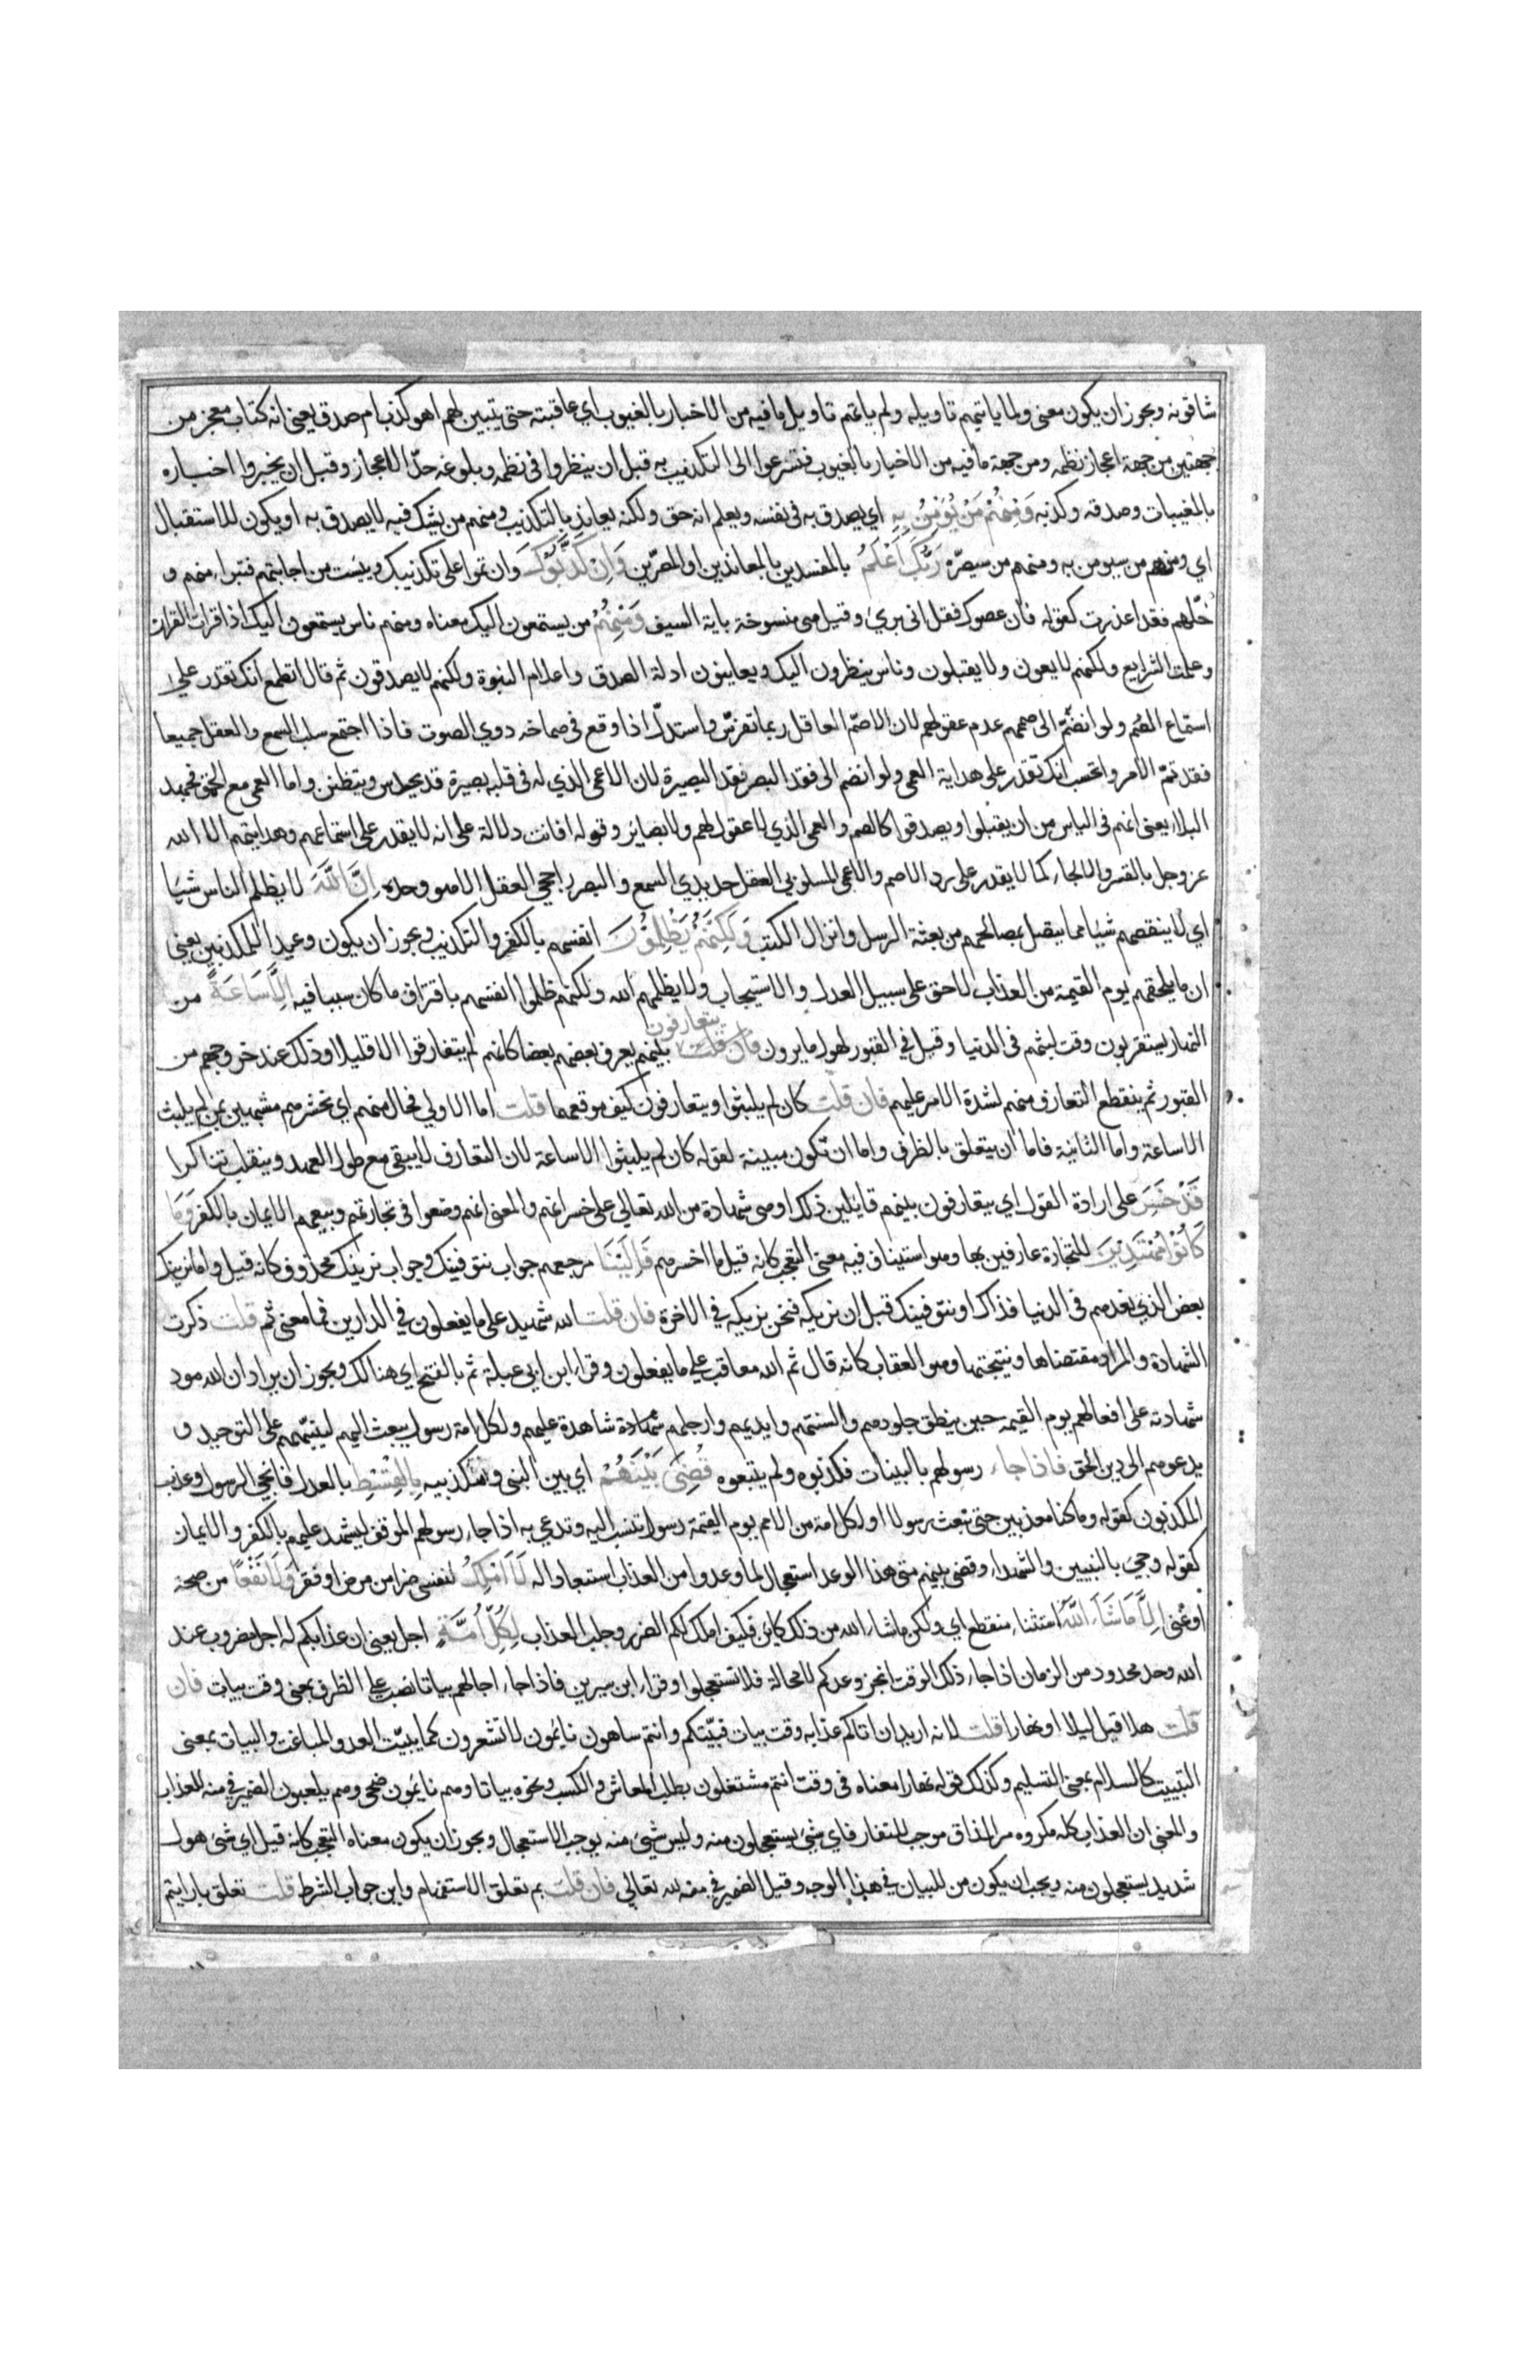 شافوته ويجوز ان يكون معنى ولما ياتيهم تاويله ولم ياتهم تاويل ما فيه من الاخبار بالغيوب اي عاقبته حتى يتبين لهم اهو كذب ام صدق يعني انه كتاب معجز من
جهتين من جهة اعجاز نظمه ومن جهة ما فيه من الاخبار بالغيوب فتسرعوا الى التكذيب به قبل ان ينظروا في نظمه وبلوغه حد الاعجاز وقبل ان يخبروا اخباره
بالمغيبات وصدقه وكذبه وَمِنْهُمْ مَنْ يُؤمِنُ بِهِ اي يصدق به في نفسه ويعلم انه حق ولكنه يعاند بالتكذيب ومنهم من يشك فيه لا يصدق به او يكون للاستقبال
اي ومنهم من سيومن به ومنهم من سيصرّ رَبُّكَ اَعْلَمُ بالمفسدين بالمعاندين او المصرّين وَاِنْ كَذَّبُوْكَ وان تموا على تكذيبك ويئست من اجابتهم فتبراء منهم و
خلّهم فقد اعذرت كقوله فان عصوك فقل انى بريء وقيل هى منسوخة باية السيف وَمِنْهُمْ من يستمعون اليك معناه ومنهم ناس يستمعون اليك اذا قرات القران
وعلمت الشرايع ولكنهم لا يعون ولا يقبلون وناس ينظرون اليك ويعاينون ادلة الصدق واعلام النبوة ولكنهم لا يصدقون ثم قال اتطمع انك تقدر على
استماع الصُم ولو انضمّ الى صممهم عدم عقولهم لان الاصمّ العاقل ربما تفرّس واستدلّ اذا وقع في صماخه دوي الصوت فاذا اجتمع سلب السمع والعقل جميعا
فقد تمّ الامر واتحسب انك تقدر على هداية العمى ولو انضم الى فقد البصر فقد البصيرة لان الاعمى الذي له في قلبه بصيرة قد يحدس ويتظنن واما العمى مع الحمق فجهد
البلاء يعنى انهم في الياس من ان يقبلوا ويصدقوا كالصم والعمى الذي لا عقول لهم ولا بصاير وقوله افانت دلالة على انه لا يقدر على استماعهم وهدايتهم الا الله
عز وجل بالقسر والالجاء كما لا يقدر على رد الاصم والاعمى المسلوبي العقل حديدي السمع والبصر راجحي العقل الا هو وحده اِنَّ اللّٰهَ لا يظلم الناس شيا
اي لا ينقصهم شيا مما يتصل بمصالحهم من بعثة الرسل وانزال الكتب وَلٰكِنَّهُمْ يَظْلِمُوْنَ انفسهم بالكفر والتكذيب ويجوز ان يكون وعيدا للمكذبين يعني
ان ما يلحقهم يوم القيمة من العذاب لاحق على سبيل العدل والاستيجاب ولا يظلمهم الله ولكنهم ظلموا انفسهم باقتراف ما كان سببا فيه اِلَّا سَاعَةً من
النهار يستقربون وقت لبثهم في الدنيا وقيل في القبور لهول ما يرون فان قلت يتعارفون بينهم يعرف بعضهم بعضا كانهم لم يتفارقوا الا قليلا وذلك عند خروجهم من
القبور ثم ينقطع التعارف منهم لشدة الامر عليهم فان قلت كان لم يلبثوا ويتعارفون كيف موقعهما قلت اما الاولى فحال منهم اي نحشرهم مشبهين بمن لم يلبث
الا ساعة واما الثانية فاما ان يتعلق بالظرف واما ان تكون مبينة لقوله كان لم يلبثوا الا ساعة لان التعارف لا يبقى مع طول العهد وينقلب تناكرا
قَدْ خَسِرَ على ارادة القول اي يتعارفون بينهم قايلين ذلك او هى شهادة من الله تعالى على خسرانهم والمعنى انهم وضعوا في تجارتهم وبيعهم الايمان بالكفر وَمَا
كَانُوْا مُهْتَدِيْنَ للتجارة عارفين بها وهو استيناف فيه معنى التعجب كانه قيل ما اخسرهم فَاِلَيْنَا مرجعهم جواب نتوفينك وجواب نرينك محذوف كانه قيل واما نرينك
بعض الذي نعدهم في الدنيا فذاك او نتوفينك قبل ان نريكه فنحن نريكه في الاخرة فان قلت الله شهيد على ما يفعلون في الدارين فما معنى ثم قلت ذكرت
الشهادة والمراد مقتضاها ونتيجتها وهو العقاب كانه قال ثم الله معاقب على ما يفعلون وقراء ابن ابي عبلة ثم بالفتح اي هنالك ويجوز ان يراد ان الله مود
شهادته على افعالهم يوم القيمه حين ينطق جلودهم والسنتهم وايديهم وارجلهم شهادة شاهدة عليهم ولكل امة رسول يبعث اليهم لينبّههم على التوحيد و
يدعوهم الى دين الحق فاذا جاء رسولهم بالبينات فكذبوه ولم يتبعوه قُضِيَ بَيْنَهُمْ اي بين النبى ومكذبيه بِالْقِسْطِ بالعدل فانجي الرسول وعذب
المكذبون كقوله وما كنا معذبين حتى نبعث رسولا او لكل امة من الامم يوم القيمة رسول تنسب اليه وتدعى به اذا جاء رسولهم الموقف ليشهد عليهم بالكفر والايمان
كقوله وجيء بالنبيين والشهداء وقضى بينهم متى هذا الوعد استعجال لما وعدوا من العذاب استبعادا له لَا اَمْلِكُ لنفسى ضرا من مرض او فقر وَلَا نَفْعًا من صحة
او غنى اِلَّا مَا شَاءَ اللّٰهُ استثناء منقطع اي ولكن ماشاء الله من ذلك كاين فكيف املك لكم الضرر وجلب العذاب لِكُلِّ اُمَّةٍ اجل يعني ان عذابكم له اجل مضروب عند
الله وحد محدود من الزمان اذا جاء ذلك الوقت انجز وعدكم لا محالة فلا تستعجلوا وقراء ابن سيرين فاذا جاء اجالهم بياتا نصب على الظرف بمعنى وقت بيات فان
قلت هلا قيل ليلا او نهارا قلت لانه اريد ان اتاكم عذابه وقت بيات فبيّتكم وانتم ساهون نايمون لا تشعرون كما يبيّت العدو المباغت والبيات بمعنى
التبييت كالسلام بمعنى التسليم وكذلك قوله نهارا معناه في وقت انتم مشتغلون بطلب المعاش والكسب ونحوه بياتا وهم نايمون ضحى وهم يلعبون الضمير في منه للعذاب
والمعنى ان العذاب كله مكروه مر المذاق موجب للنفار فاي شيء يستعجلون منه وليس شيء منه يوجب الاستعجال ويجوز ان يكون معناه التعجب كانه قيل اي شيء هول
شديد يستعجلون منه ويجب ان يكون من للبيان في هذا الوجه وقيل الضمير في منه لله تعالى فان قلت بم تعلق الاستفهام واين جواب الشرط قلت تعلق بارايتم